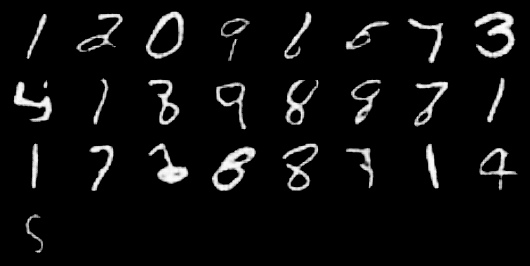 1 2 0 9 6 5 7 3
1 3 9 8 8 8 1
1 7 2 8 8 7 1 4
5